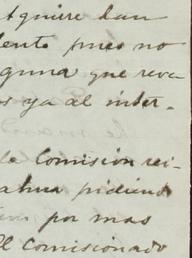 tquiere dan
dente pues no
guna que reva
s ya al inter-
la Comisión rei-
pidiend
por mas
El Comisionado